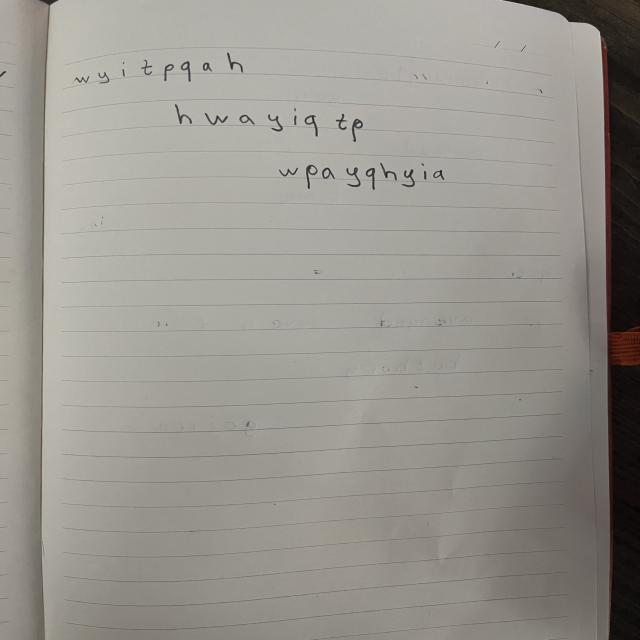 wyitpqah
hwayiqtp
wpayqhyia